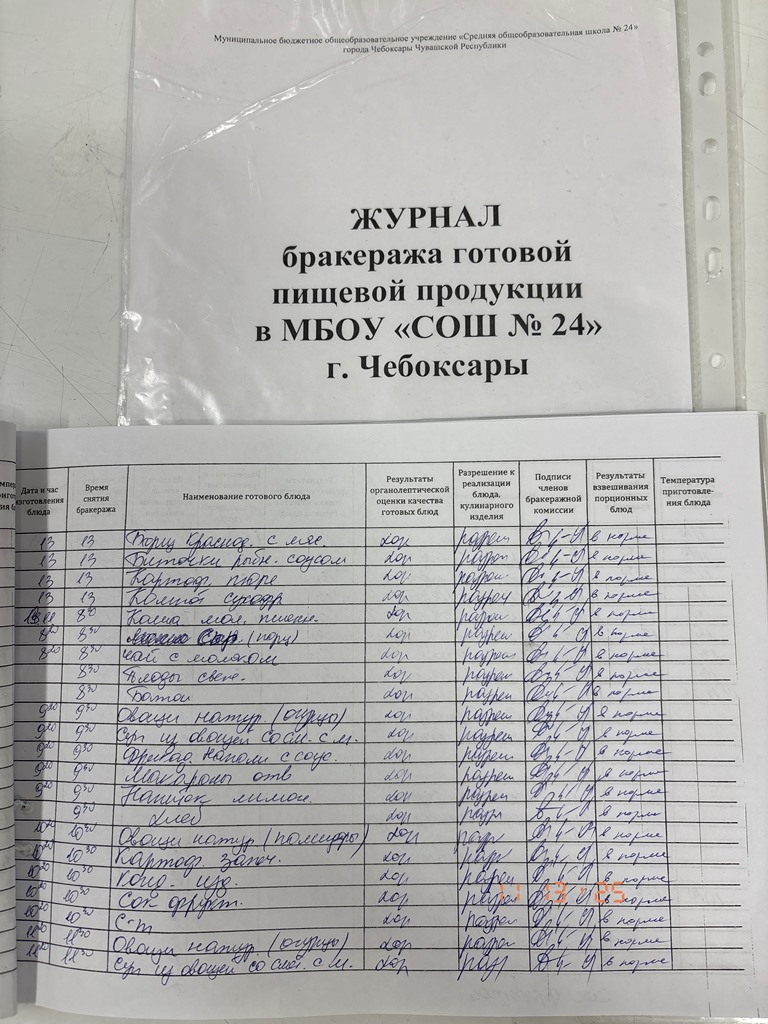 Муниципальное бюджетное общеобразовательное учреждение «Средняя общеобразовательная школа № 24»
города Чебоксары Чувашской Республики
ЖУРНАЛ
бракеража готовой
пищевой продукции
в МБОУ «СОШ № 24»
г. Чебоксары
Дата и час изготовления блюда
Время снятия бракеража
Наименование готового блюда
Результаты органолептической оценки качества готовых блюд
Разрешение к реализации блюда, кулинарного изделия
Подписи членов бракеражной комиссии
Результаты взвешивания порционных блюд
Температура приготовле-ния блюда
13 13 Борщ Краснод. с мяс. хор разреш в норме
13 13 Биточки рыбн. соусом хор разреш в норме
13 13 Картоф. пюре хор разреш в норме
13 13 Компот сухофр хор разреш в норме
8 30 Каша мол. пшенн. хор разреш в норме
8 20 8 30 Сыр. (порц) хор разреш в норме
8 20 8 30 чай с молоком хор разреш в норме
8 30 Плоды свеж. хор разреш в норме
8 30 Батон хор разреш в норме
9 20 9 30 Овощи натур (огурцы) хор разреш в норме
9 20 9 30 Суп из овощей со см. с м. хор разреш в норме
9 20 9 30 Фрикад. Натали с соус. хор разреш в норме
9 20 9 30 Макароны отв хор разреш в норме
9 20 9 30 Напиток лимон. хор разреш в норме
9 30 хлеб хор разр в норме
10 20 10 30 Овощи натур (помидоры) хор разр в норме
10 20 10 30 Картоф. запеч. хор разр в норме
10 20 10 30 Конд. изд. хор разреш в норме
10 20 10 30 Сок фрукт. хор разреш в норме
10 20 10 30 хор разреш в норме
11 20 11 30 Овощи натур (огурцы) хор разреш в норме
11 20 11 30 Суп из овощей со смет. с м. хор разр в норме
11 13 '25